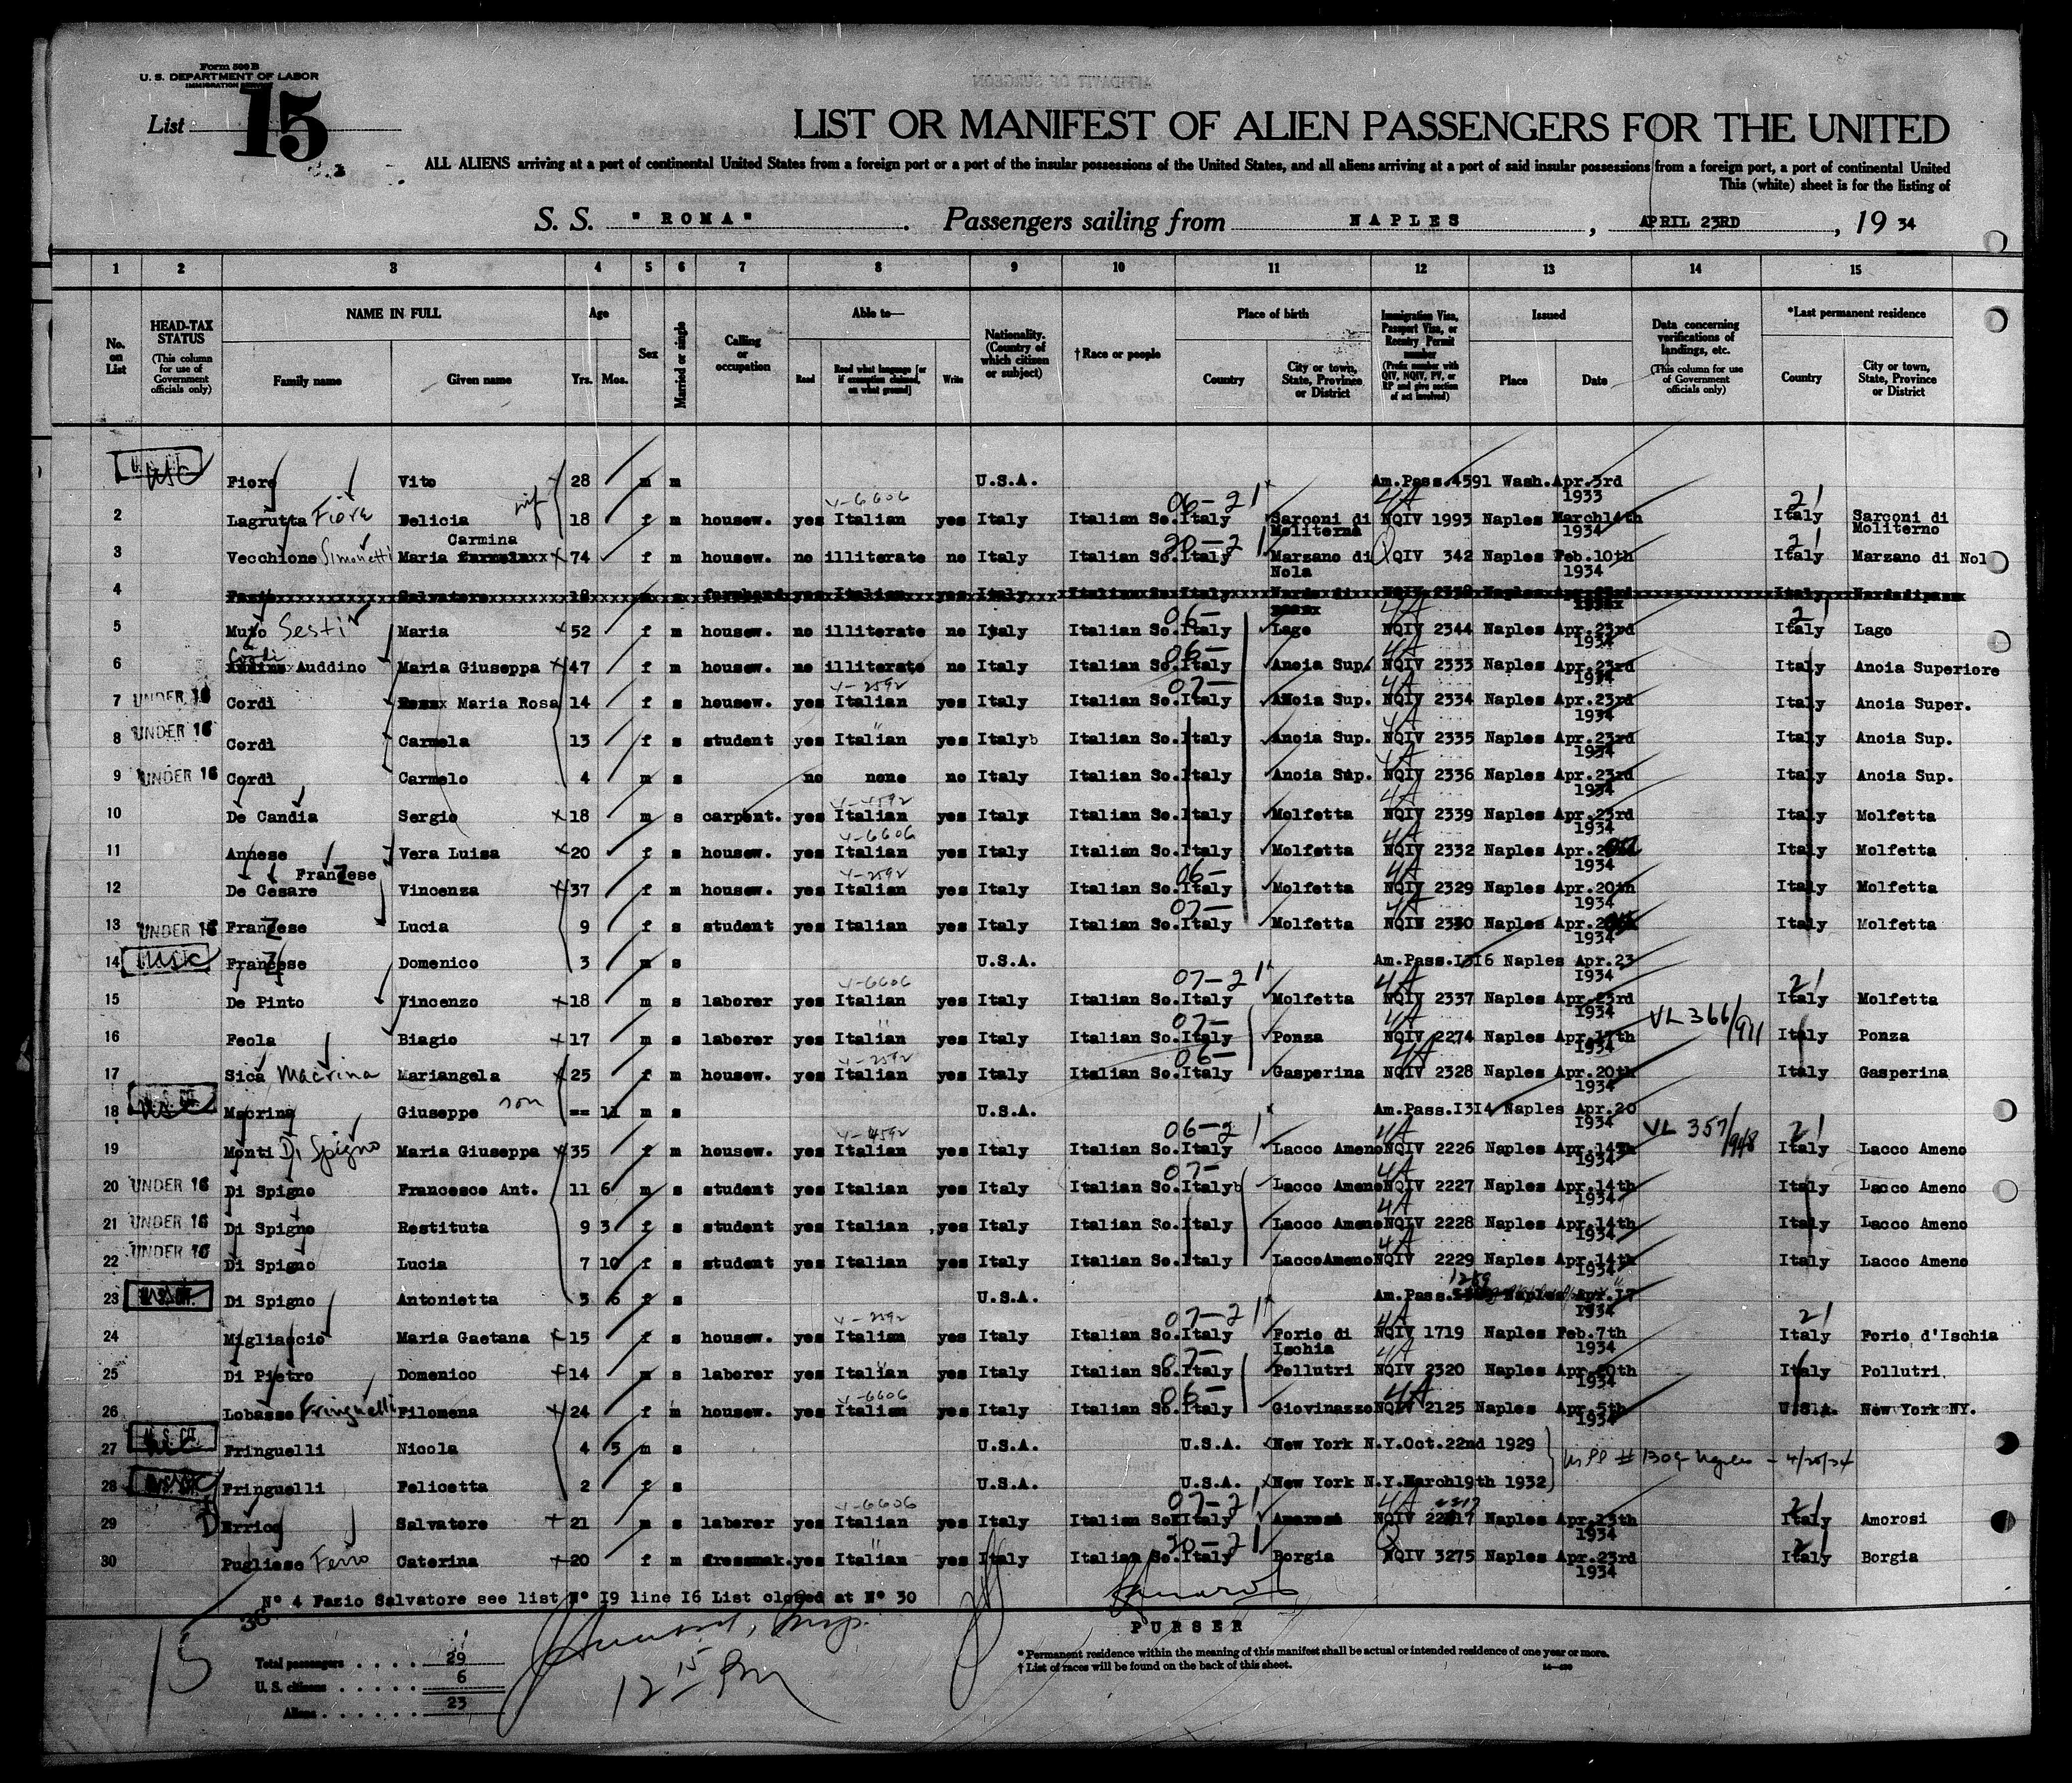 Form 500 B
U. S. DEPARTMENT OF LABOR
IMMIGRATION
List 15
LIST OR MANIFEST OF ALIEN PASSENGERS FOR THE UNITED
ALL ALIENS arriving at a port of continental United States from a foreign port or a port of the insular possessions of the United States, and all aliens arriving at a port of said insular possessions from a foreign port, a port of continental United
This (white) sheet is for the listing of
S. S. "ROMA". Passengers sailing from NAPLES, APRIL 23RD, 19 34
1 2 3 4 5 6 7 8 9 10 11 12 13 14 15
No. on List
HEAD-TAX STATUS (This column for use of Government officials only)
NAME IN FULL Family name Given name
Age Yrs. Mos.
Sex
Married or single
Calling or occupation
Able to— Read Read what language [or if exemption claimed, on what ground] Write
Nationality. (Country of which citizen or subject)
†Race or people
Place of birth Country City or town, State, Province or District
Immigration Visa, Passport Visa, or Reentry Permit number (Prefix number with QIV, NQIV, PV, or RP and give section of act involved)
Issued Place Date
Data concerning verifications of landings, etc. (This column for use of Government officials only)
*Last permanent residence Country City or town, State, Province or District
USC Fiore Vito 28 m m U.S.A. Am.Pass.4591 Wash.Apr.3rd 1933
2 Lagrutta Fiore Felicia wif 18 f m housew. yes Italian yes Italy Italian So.Italy Sarconi di Moliterno NQIV 1993 Naples March14th 1934 Italy Sarconi di Moliterno
3 Vecchione Simonetti Maria Carmina 74 f m housew. no illiterate no Italy Italian So.Italy Marzano di Nola QIV 342 Naples Feb.10th 1934 Italy Marzano di Nol
4 Fazio Salvatore
5 Muto Sesti Maria 52 f m housew. no illiterate no Italy Italian So.Italy Lago NQIV 2344 Naples Apr.23rd 1934 Italy Lago
6 Cordi Auddino Maria Giuseppa 47 f m housew. no illiterate no Italy Italian So.Italy Anoia Sup. NQIV 2333 Naples Apr.23rd 1934 Italy Anoia Superiore
7 UNDER 16 Cordì Maria Rosa 14 f s housew. yes Italian yes Italy Italian So.Italy Anoia Sup. NQIV 2334 Naples Apr.23rd 1934 Italy Anoia Super.
8 UNDER 16 Cordì Carmela 13 f s student yes Italian yes Italy Italian So.Italy Anoia Sup. NQIV 2335 Naples Apr.23rd 1934 Italy Anoia Sup.
9 UNDER 16 Cordì Carmelo 4 m s no none no Italy Italian So.Italy Anoia Sup. NQIV 2336 Naples Apr.23rd 1934 Italy Anoia Sup.
10 De Candia Sergio 18 m s carpent. yes Italian yes Italy Italian So.Italy Molfetta NQIV 2339 Naples Apr.23rd 1934 Italy Molfetta
11 Annese Vera Luisa 20 f s housew. yes Italian yes Italy Italian So.Italy Molfetta NQIV 2332 Naples Apr. 1934 Italy Molfetta
12 De Cesare Franzese Vincenza 37 f m housew. yes Italian yes Italy Italian So.Italy Molfetta NQIV 2329 Naples Apr.20th 1934 Italy Molfetta
13 UNDER 16 Franzese Lucia 9 f s student yes Italian yes Italy Italian So.Italy Molfetta NQIV 2330 Naples Apr. 1934 Italy Molfetta
14 USC Franzese Domenico 3 m s U.S.A. Am.Pass.1316 Naples Apr.23 1934
15 De Pinto Vincenzo 18 m s laborer yes Italian yes Italy Italian So.Italy Molfetta NQIV 2337 Naples Apr.23rd 1934 Italy Molfetta
16 Feola Biagio 17 m s laborer yes Italian yes Italy Italian So.Italy Ponza NQIV 2274 Naples Apr.17th 1934 VL 366/911 Italy Ponza
17 Sica Macrina Mariangela 25 f m housew. yes Italian yes Italy Italian So.Italy Gasperina NQIV 2328 Naples Apr.20th 1934 Italy Gasperina
18 Macrina Giuseppe son == 11 m s U.S.A. Am.Pass.1314 Naples Apr.20 1934
19 Monti Di Spigno Maria Giuseppa 35 f m housew. yes Italian yes Italy Italian So.Italy Lacco Ameno NQIV 2226 Naples Apr.14th 1934 VL 357/948 Italy Lacco Ameno
20 UNDER 16 Di Spigno Francesco Ant. 11 6 m s student yes Italian yes Italy Italian So.Italy Lacco Ameno NQIV 2227 Naples Apr.14th 1934 Italy Lacco Ameno
21 UNDER 16 Di Spigno Restituta 9 3 f s student yes Italian yes Italy Italian So.Italy Lacco Ameno NQIV 2228 Naples Apr.14th 1934 Italy Lacco Ameno
22 UNDER 16 Di Spigno Lucia 7 10 f s student yes Italian yes Italy Italian So.Italy LaccoAmeno NQIV 2229 Naples Apr.14th 1934 Italy Lacco Ameno
23 Di Spigno Antonietta 3 6 f s U.S.A. Am.Pass. 1289 Naples Apr.17 1934
24 Migliaccio Maria Gaetana 15 f s housew. yes Italian yes Italy Italian So.Italy Forio di Ischia NQIV 1719 Naples Feb.7th 1934 Italy Forio d'Ischia
25 Di Pietro Domenico 14 m s laborer yes Italian yes Italy Italian So.Italy Pollutri NQIV 2320 Naples Apr.20th 1934 Italy Pollutri.
26 Lobasso Fringuelli Filomena 24 f m housew. yes Italian yes Italy Italian So.Italy Giovinazzo NQIV 2125 Naples Apr.5th 1934 U.S.A. New York NY.
27 U.S. CIT. Fringuelli Nicola 4 5 m s U.S.A. U.S.A. New York N.Y.Oct.22nd 1929
28 Fringuelli Felicetta 2 f s U.S.A. U.S.A. New York N.Y.March19th 1932
29 Errico Salvatore 21 m s laborer yes Italian yes Italy Italian So.Italy Amorosi NQIV 2217 Naples Apr.13th 1934 Italy Amorosi
30 Pugliese Caterina 20 f m dressmak. yes Italian yes Italy Italian So.Italy Borgia NQIV 3275 Naples Apr.23rd 1934 Italy Borgia
N° 4 Fazio Salvatore see list N° 19 line 16 List closed at N° 30
PURSER
15
Total passengers 29
U. S. citizens 6
Aliens 23
12 15 Pm
* Permanent residence within the meaning of this manifest shall be actual or intended residence of one year or more.
† List of races will be found on the back of this sheet.